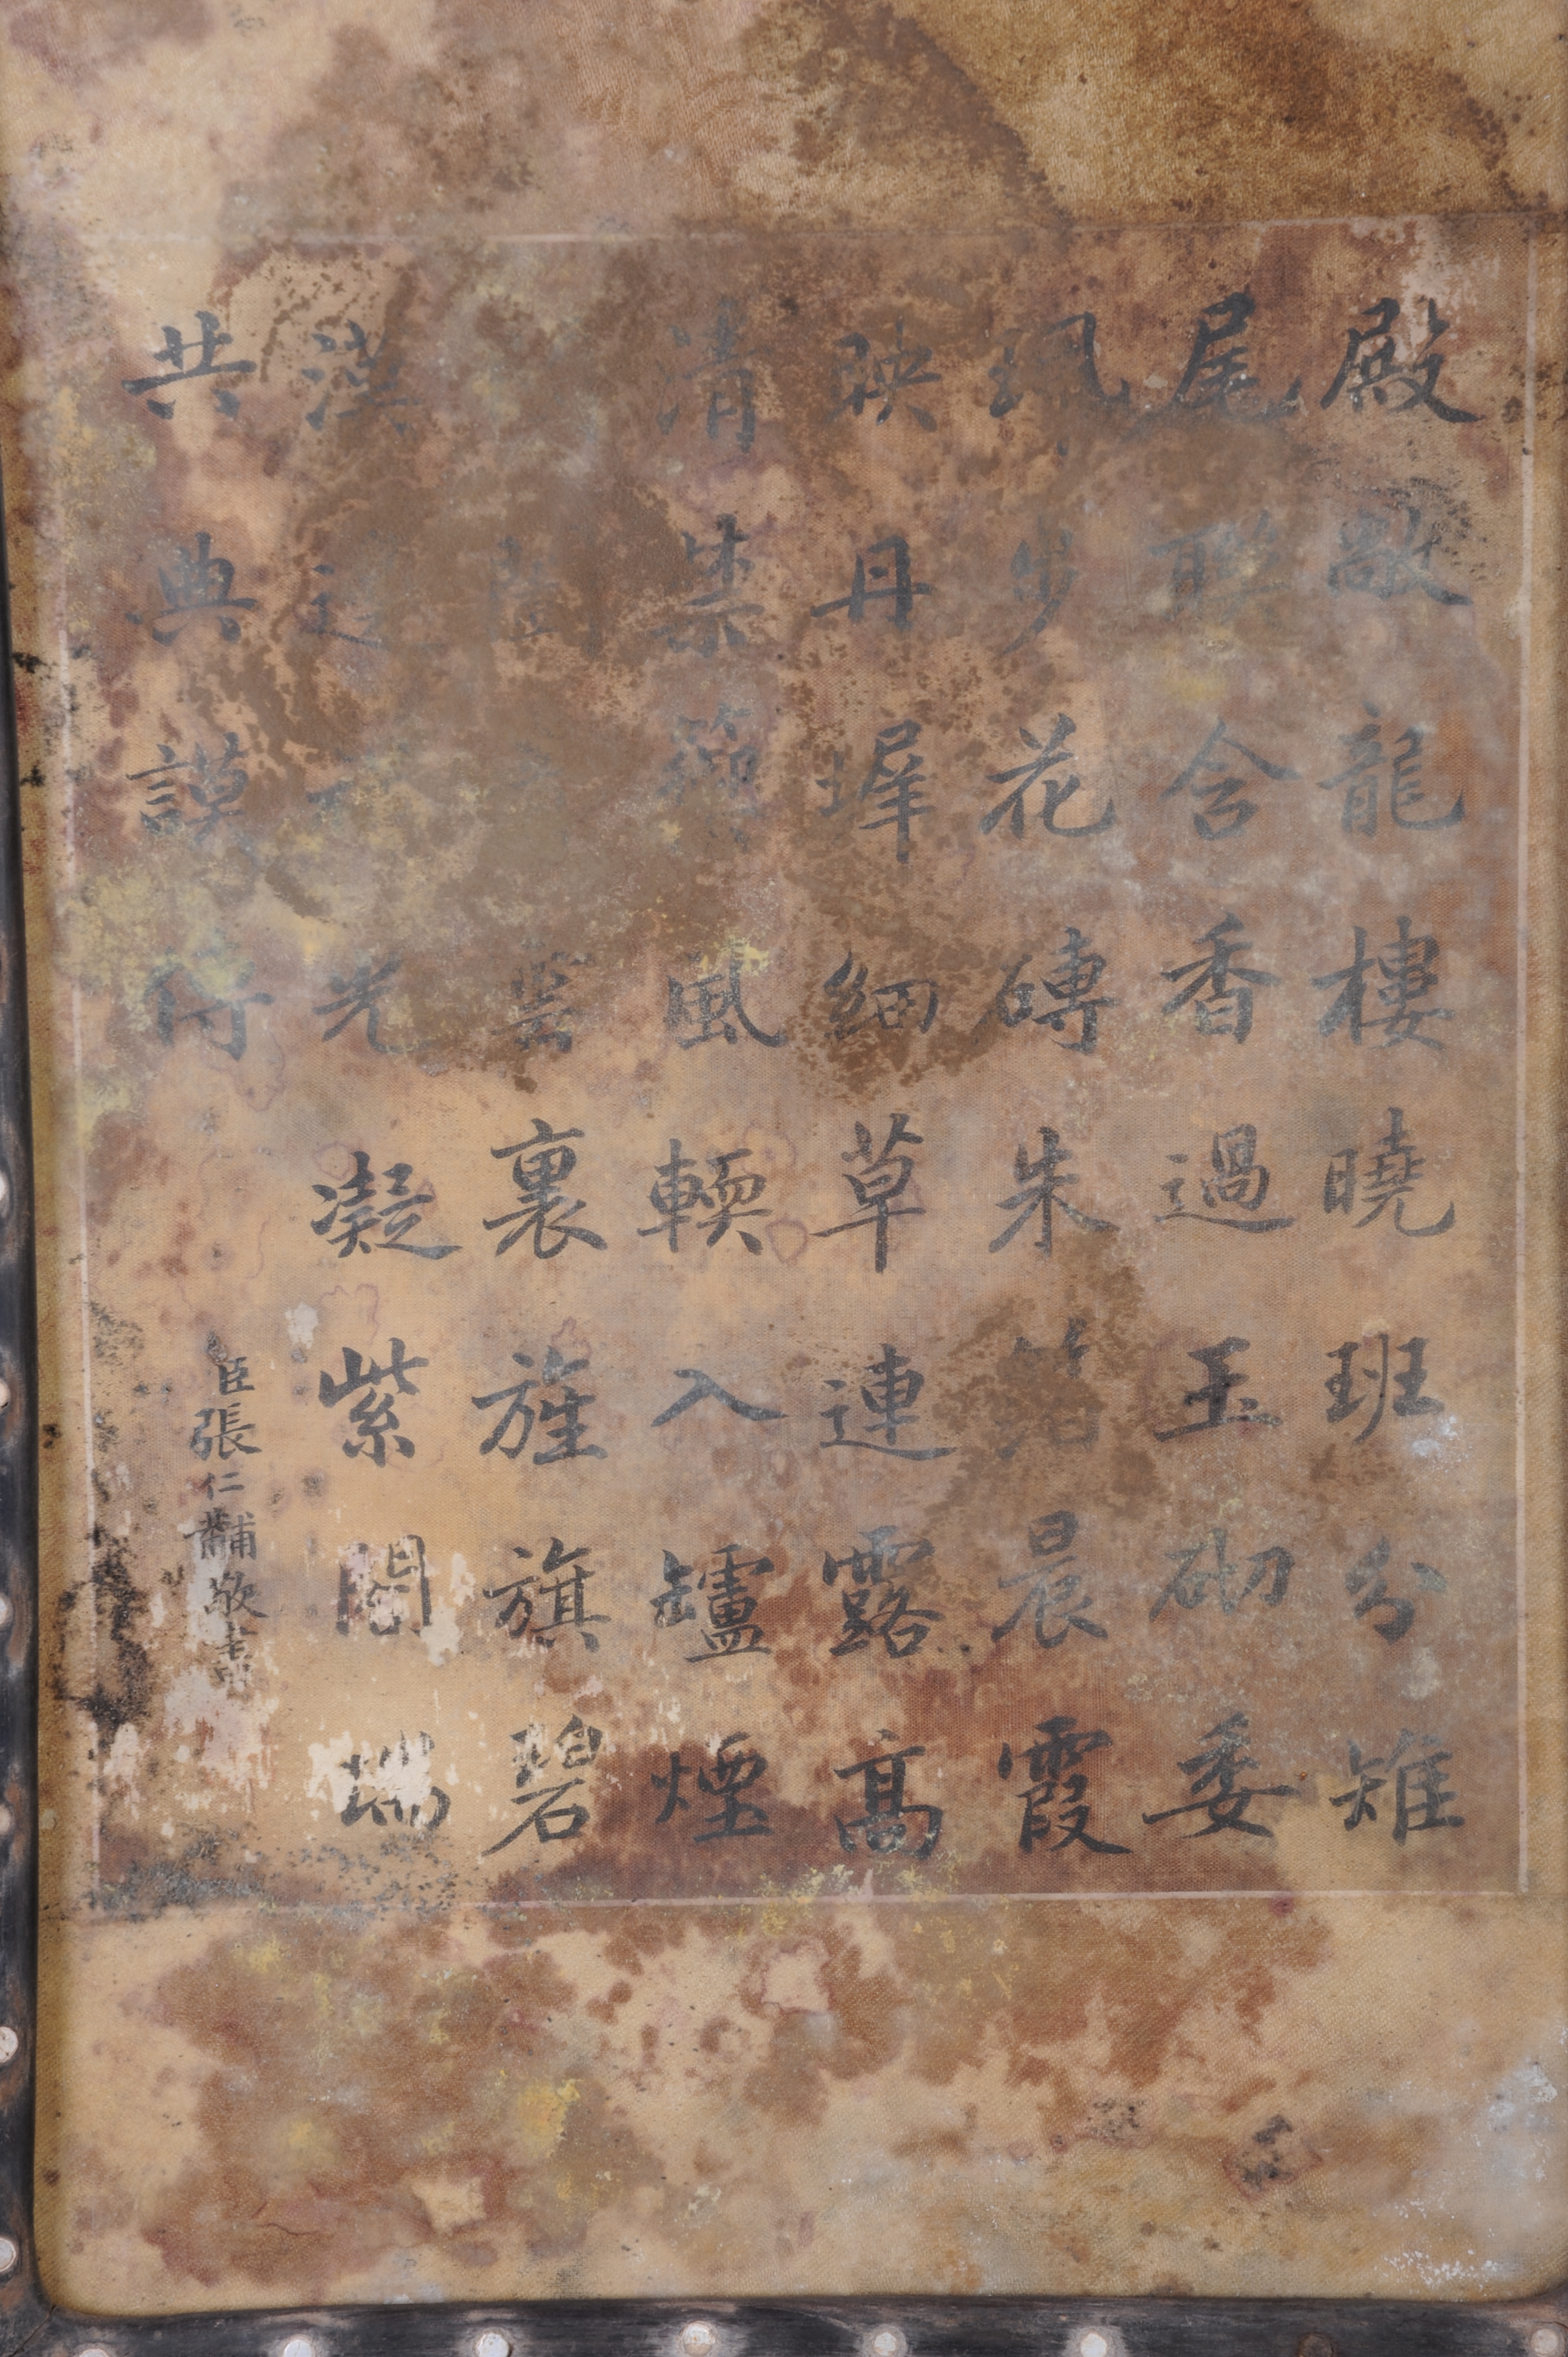 殿敞龍樓曉班分雉
尾聯含香過玉砌委
珮步花磚朱箔晨霞
映丹墀細草連露高
清禁風輭入罏煙
裏旌旗碧
漢光凝紫瑞
共典謨
臣張仁黼敬書